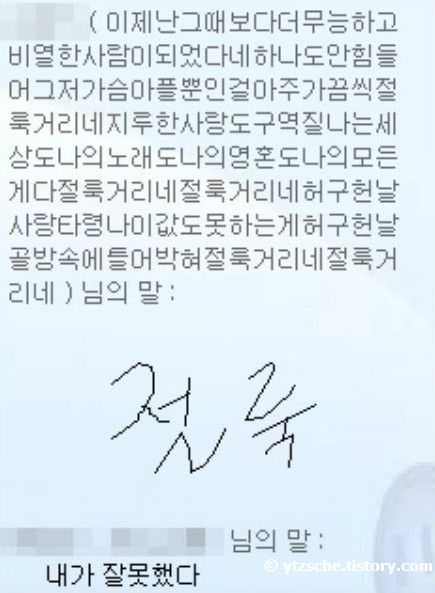 ( 이제난그때보다더무능하고
비열한사람이되었다네하나도안힘들
어그저가슴아플뿐인걸아주가끔씩절
룩거리네지루한사랑도구역질나는세
상도나의노래도나의영혼도나의모든
게다절룩거리네절룩거리네허구헌날
사랑타령나이값도못하는게허구헌날
골방속에틀어박혀절룩거리네절룩거
리네 ) 님의 말 :
절룩
님의 말 :
내가 잘못했다
© ytzsche.tistory.com